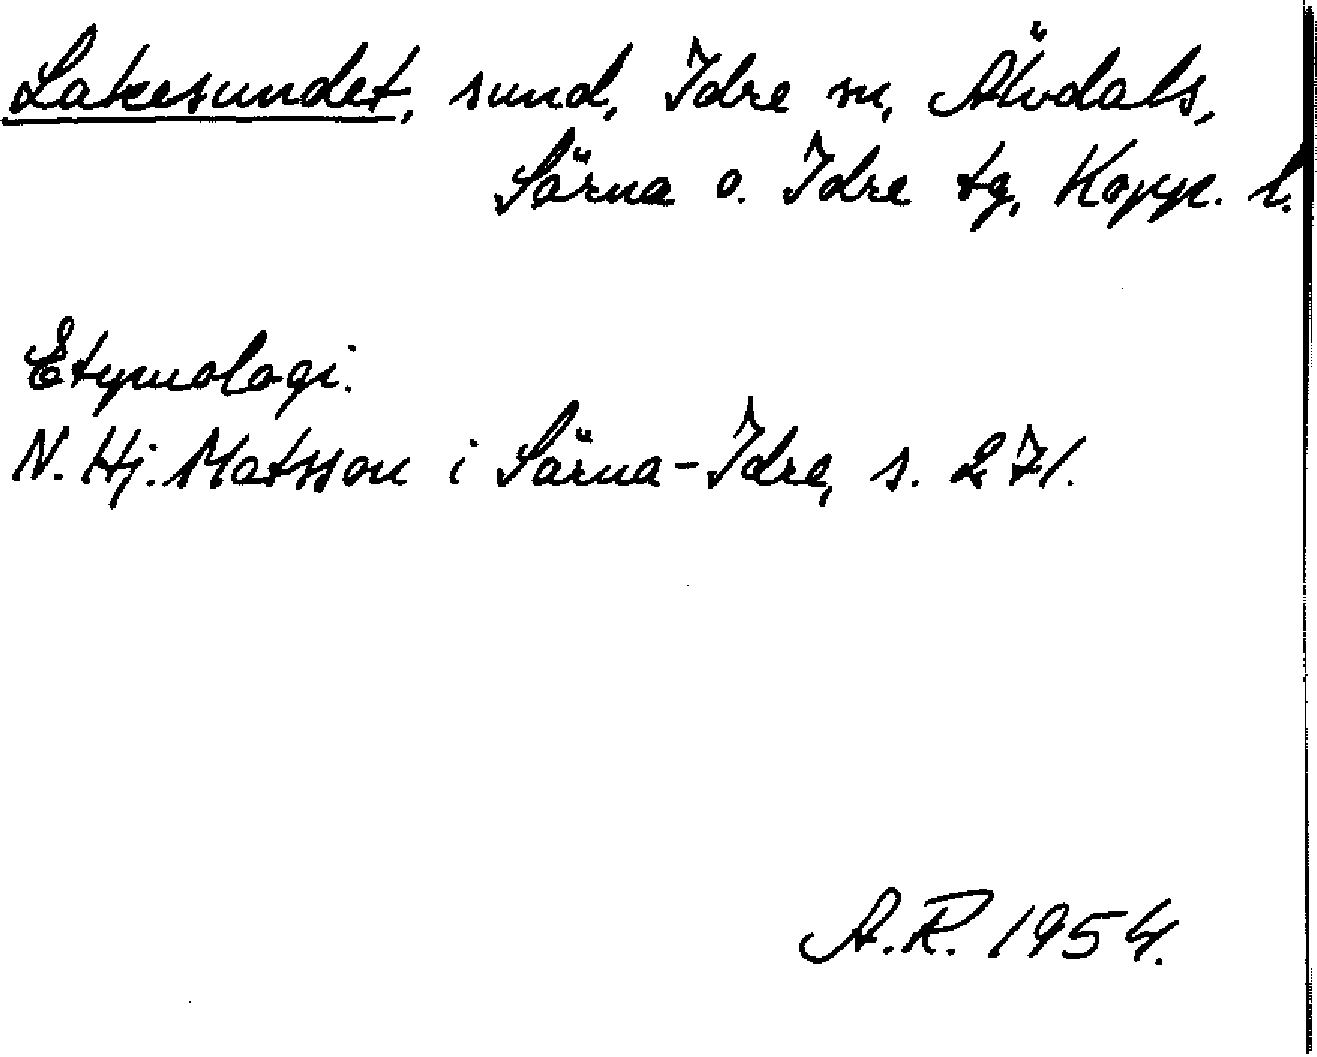 Lakesundet, sund, Idre sn, Älvdals,
Särna o. Idre tg, Kopp. l.
Etymologi.
N. Hj. Matsson i Särna-Idre, s. 271.
A.R. 1954.